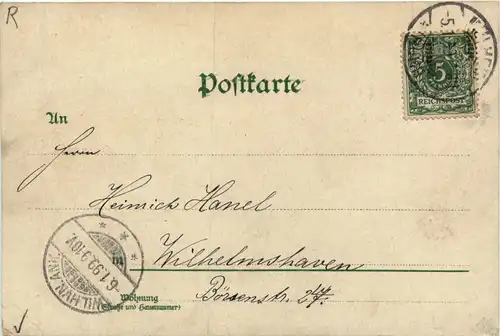 R
5
REICHSPOST
Postkarte
An
Herrn
Heinrich Hanel
in Wilhelmshaven
Wohnung Börsenstr.
(Straße und Hausnummer)
6.1.99.9-10V.